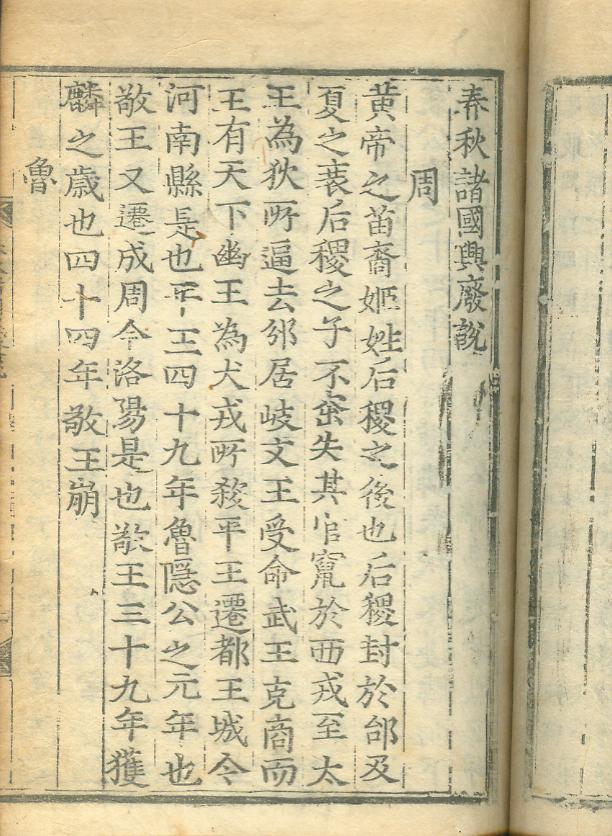 春秋諸國興廢說
周
黃帝之苗裔姬姓后稷之後也后稷封於邰及
夏之衰后稷之子不窋失其官竄於西戎至太
王為狄所逼去邠居岐文王受命武王克商而
王有天下幽王為犬戎所殺平王遷都王城今
河南縣是也平王四十九年魯隱公之元年也
敬王又遷成周今洛陽是也敬王三十九年獲
麟之歲也四十四年敬王崩
魯